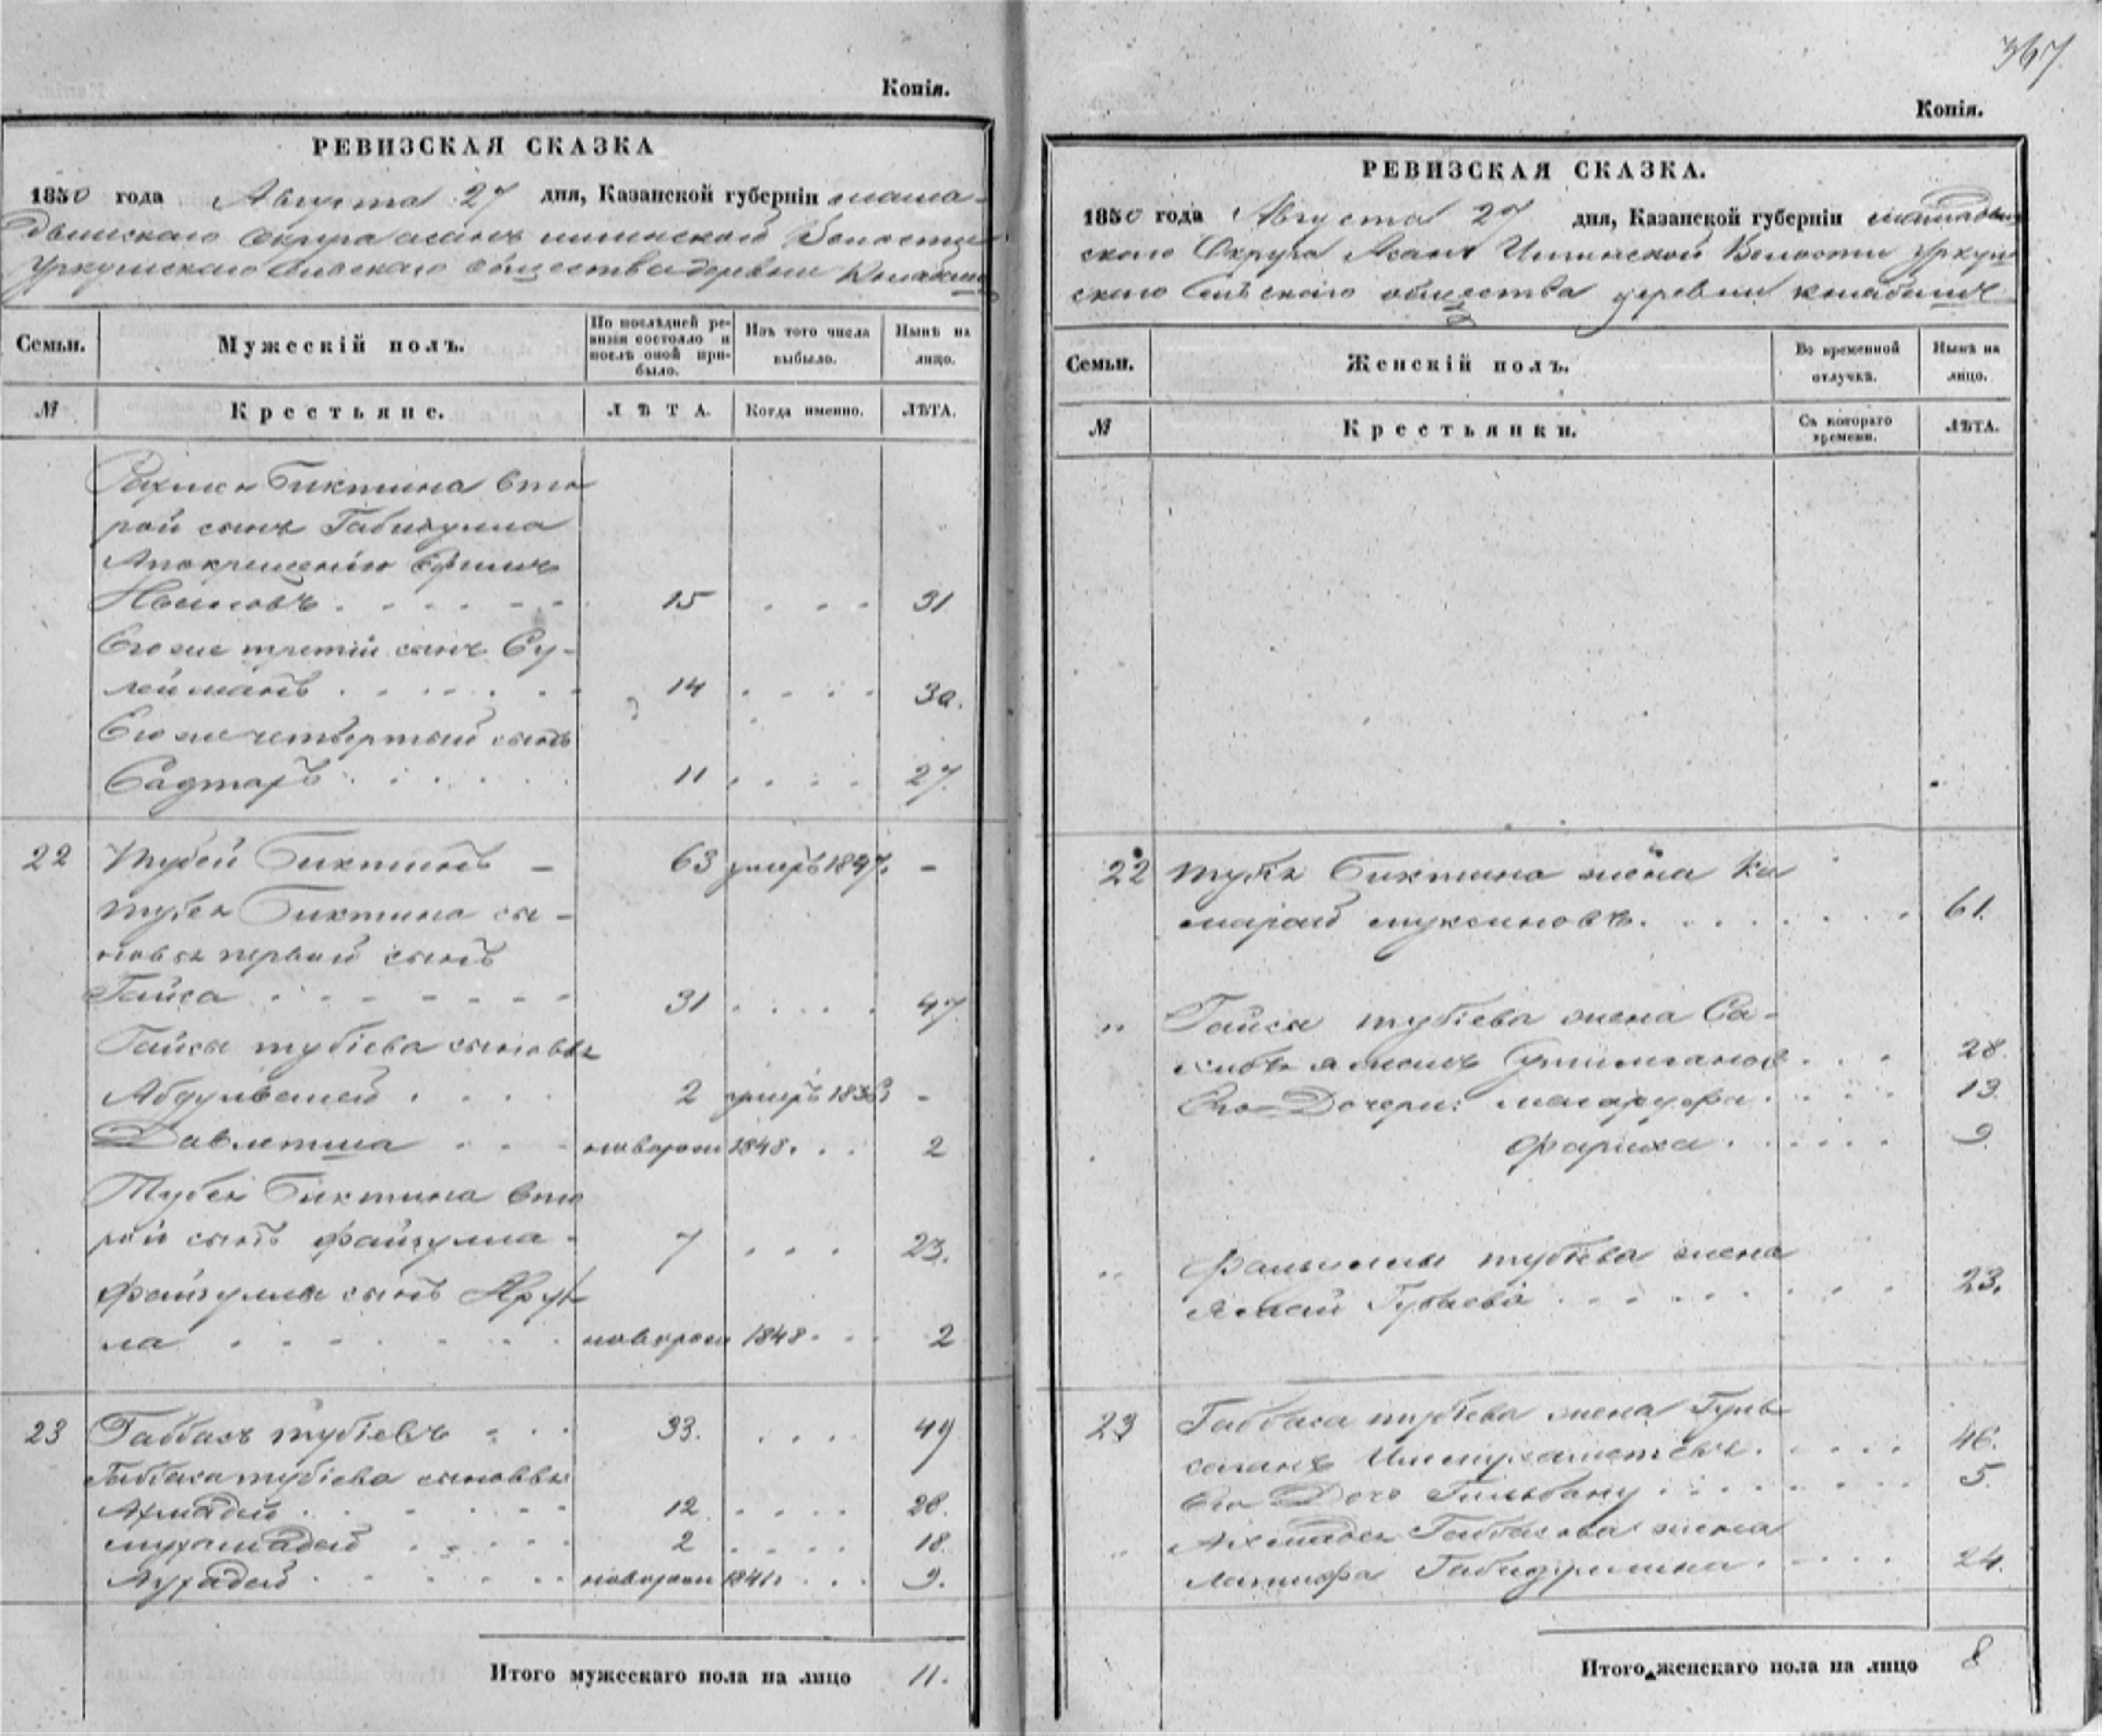 Копія.
РЕВИЗСКАЯ СКАЗКА
1850 года Августа 27 дня, Казанской губерніи мама-
дышскаго Округа асанъ илинской Волости
Уркушскаго сельскаго общества деревни
Семьи. Мужескій полъ. По послѣдней ревизіи состояло и послѣ оной прибыло. Изъ того числа выбыло. Нынѣ на лицо.
№ Крестьяне. ЛѢТА. Когда именно. ЛѢТА.
Биктина вто
рой сынъ Габидулла
Апокрещенію
15 31
Его же третій сынъ Су-
лейманъ 14 30.
Его же четвертый сынъ
Садтаръ 11 27.
22 Тубей Биктинъ — 63 умеръ 1847. —
Тубея Биктина сы-
новья первой сынъ
Гайса 31 47
Гайсы тубіева сыновья
2 умеръ 1836 —
Давлетша новорож 1848. 2
Тубея Биктина вто
рой сынъ файзулла 7 23.
файзуллы сынъ
ла новорож 1848 2
23 Габбасъ тубіевъ 33. 49
Габбаса тубіева сыновья
Ахмадей 12 28.
мухамадей 2 18.
новорож 1841. 9.
Итого мужескаго пола на лицо 11.
367
Копія.
РЕВИЗСКАЯ СКАЗКА.
1850 года Августа 27 дня, Казанской губерніи мамадыш
скаго Округа Асанъ Илинской Волости Уркуш
скаго Сельскаго общества деревни
Семьи. Женскій полъ. Во временной отлучкѣ. Нынѣ на лицо.
№ Крестьянки. Съ котораго времени. ЛѢТА.
22 тубея Биктина жена Ка
марай муксинова 61.
„ Гайсы тубіева жена Са-
28.
Его Дочери: магаруфа 13.
фариха 9.
„ тубіева жена
Губаева 23.
23 Габбаса тубіева жена Гуль
46.
Его Дочь Гильбану 5.
„ Ахмадея Габбасова жена
Латифа Габидуллина 24.
Итого женскаго пола на лицо 8